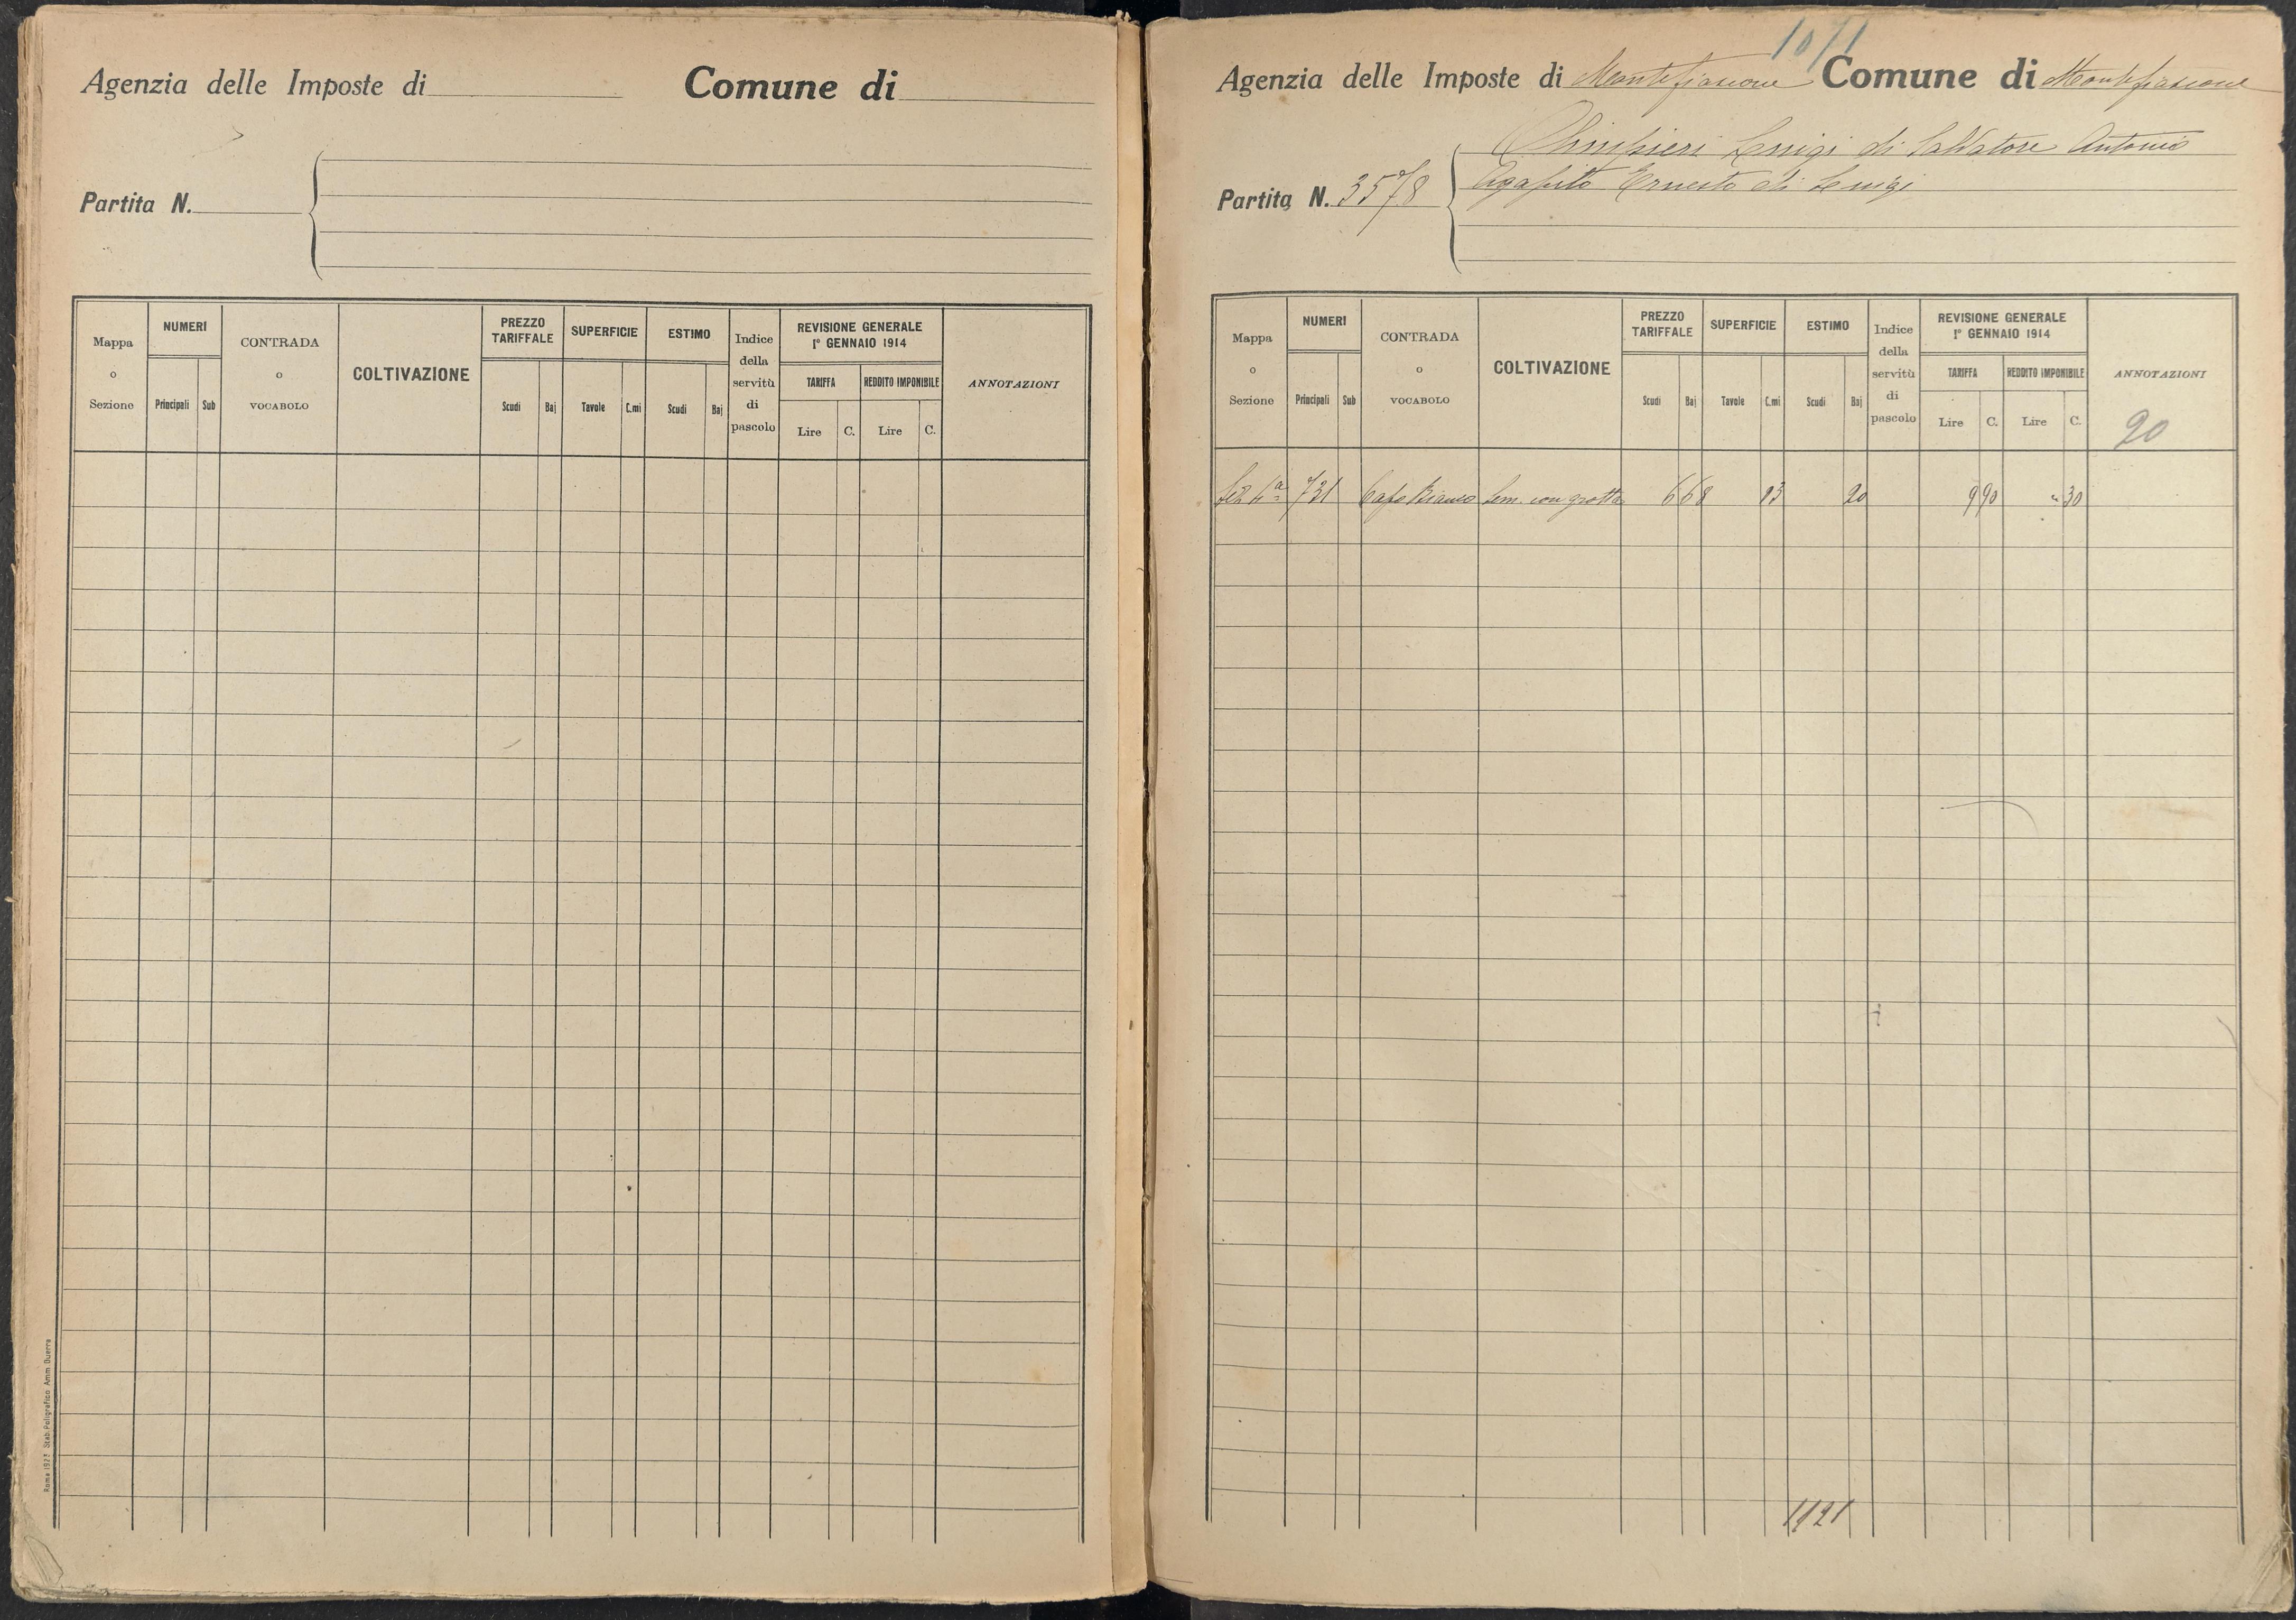 Agenzia delle Imposte di Comune di
Partita N.
Mappa o Sezione NUMERI Principali Sub CONTRADA o VOCABOLO COLTIVAZIONE PREZZO TARIFFALE Scudi Baj SUPERFICIE Tavole C.mi ESTIMO Scudi Baj Indice della servitù di pascolo REVISIONE GENERALE 1° GENNAIO 1914 TARIFFA Lire C. REDDITO IMPONIBILE Lire C. ANNOTAZIONI
Roma 1923 Stab. Poligrafico Amm. Guerra
1071
Agenzia delle Imposte di Montefiascone Comune di Montefiascone
Olimpieri Luigi di Salvatore Antonio
Agapito Ernesto di Luigi
Partita N. 3578
Mappa o Sezione NUMERI Principali Sub CONTRADA o VOCABOLO COLTIVAZIONE PREZZO TARIFFALE Scudi Baj SUPERFICIE Tavole C.mi ESTIMO Scudi Baj Indice della servitù di pascolo REVISIONE GENERALE 1° GENNAIO 1914 TARIFFA Lire C. REDDITO IMPONIBILE Lire C. ANNOTAZIONI
20
731 Capo Bianco Sem. con grotta 6 68 03 20 9 90 " 30
1121